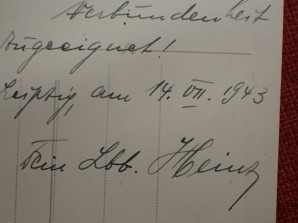 Verbundenheit
zugeeignet!
Leipzig, am 14. VII. 1943
Dein Lbb. Heinz